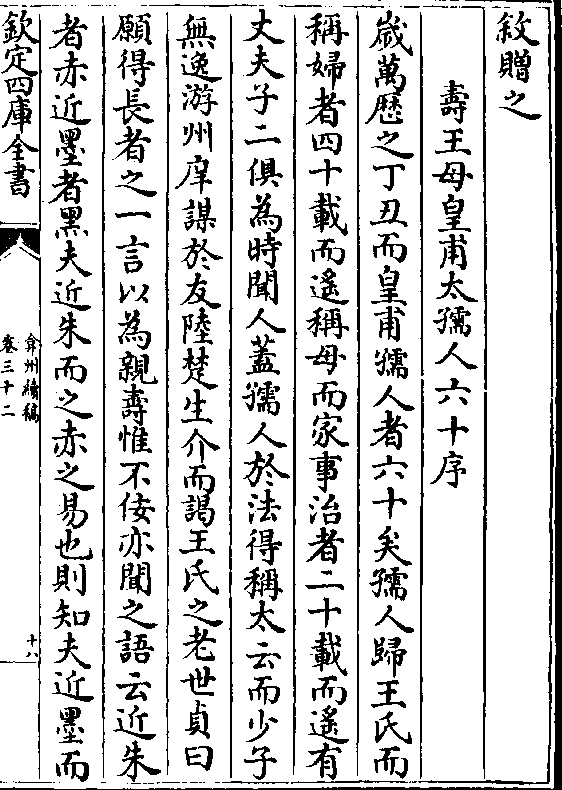 敘贈之
壽王母皇甫太孺人六十序
歲萬歴之丁丑而皇甫孺人者六十矣孺人歸王氏而
稱婦者四十載而遙稱母而家事治者二十載而遙有
丈夫子二俱為時聞人蓋孺人於法得稱太云而少子
無逸游州庠謀於友陸楚生介而謁王氏之老世貞曰
願得長者之一言以為親壽惟不佞亦聞之語云近朱
者赤近墨者黑夫近朱而之赤之易也則知夫近墨而
欽定四庫全書
弇州續稿
卷三十二
十八